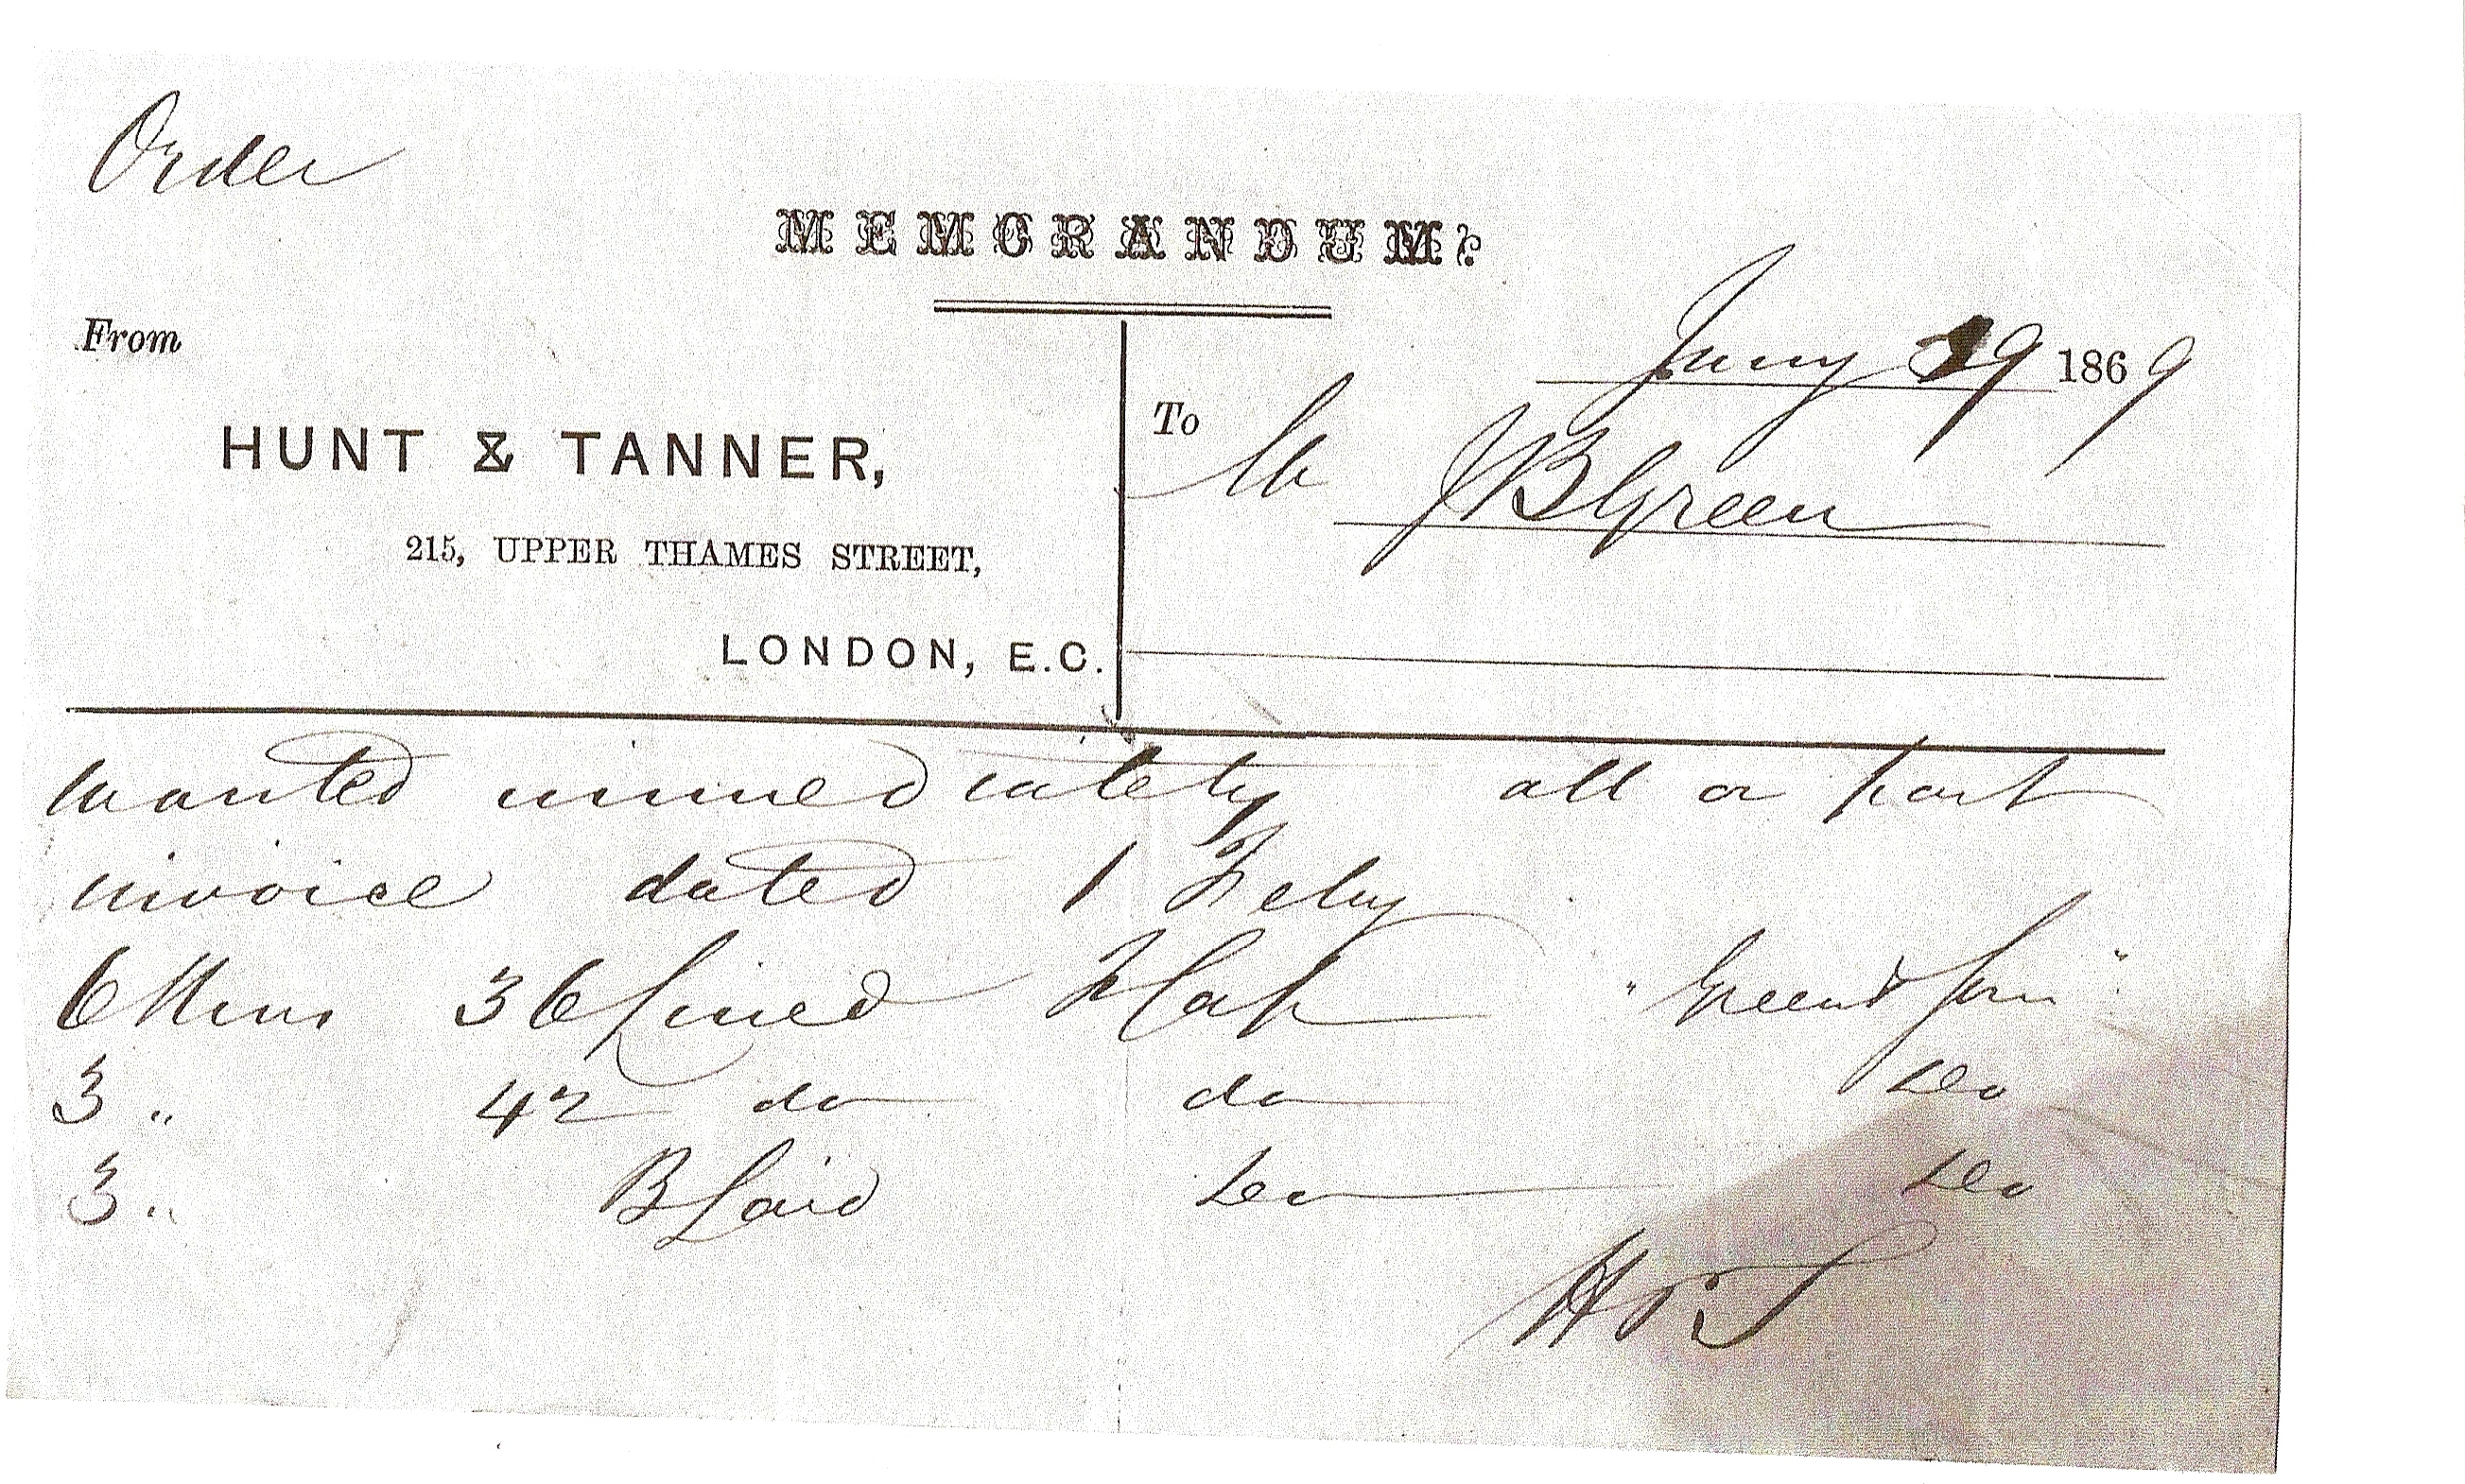 Order
MEMORANDUM.
From
HUNT & TANNER,
215, UPPER THAMES STREET,
LONDON, E.C.
Jany 29 1869
To Mr J B Green
Wanted immediately all or part
invoice dated 1 Feby
6 Rms 36 Lined Flat "Green & Son"
3 " 42 do do do
3 " B Laid do do
H & T